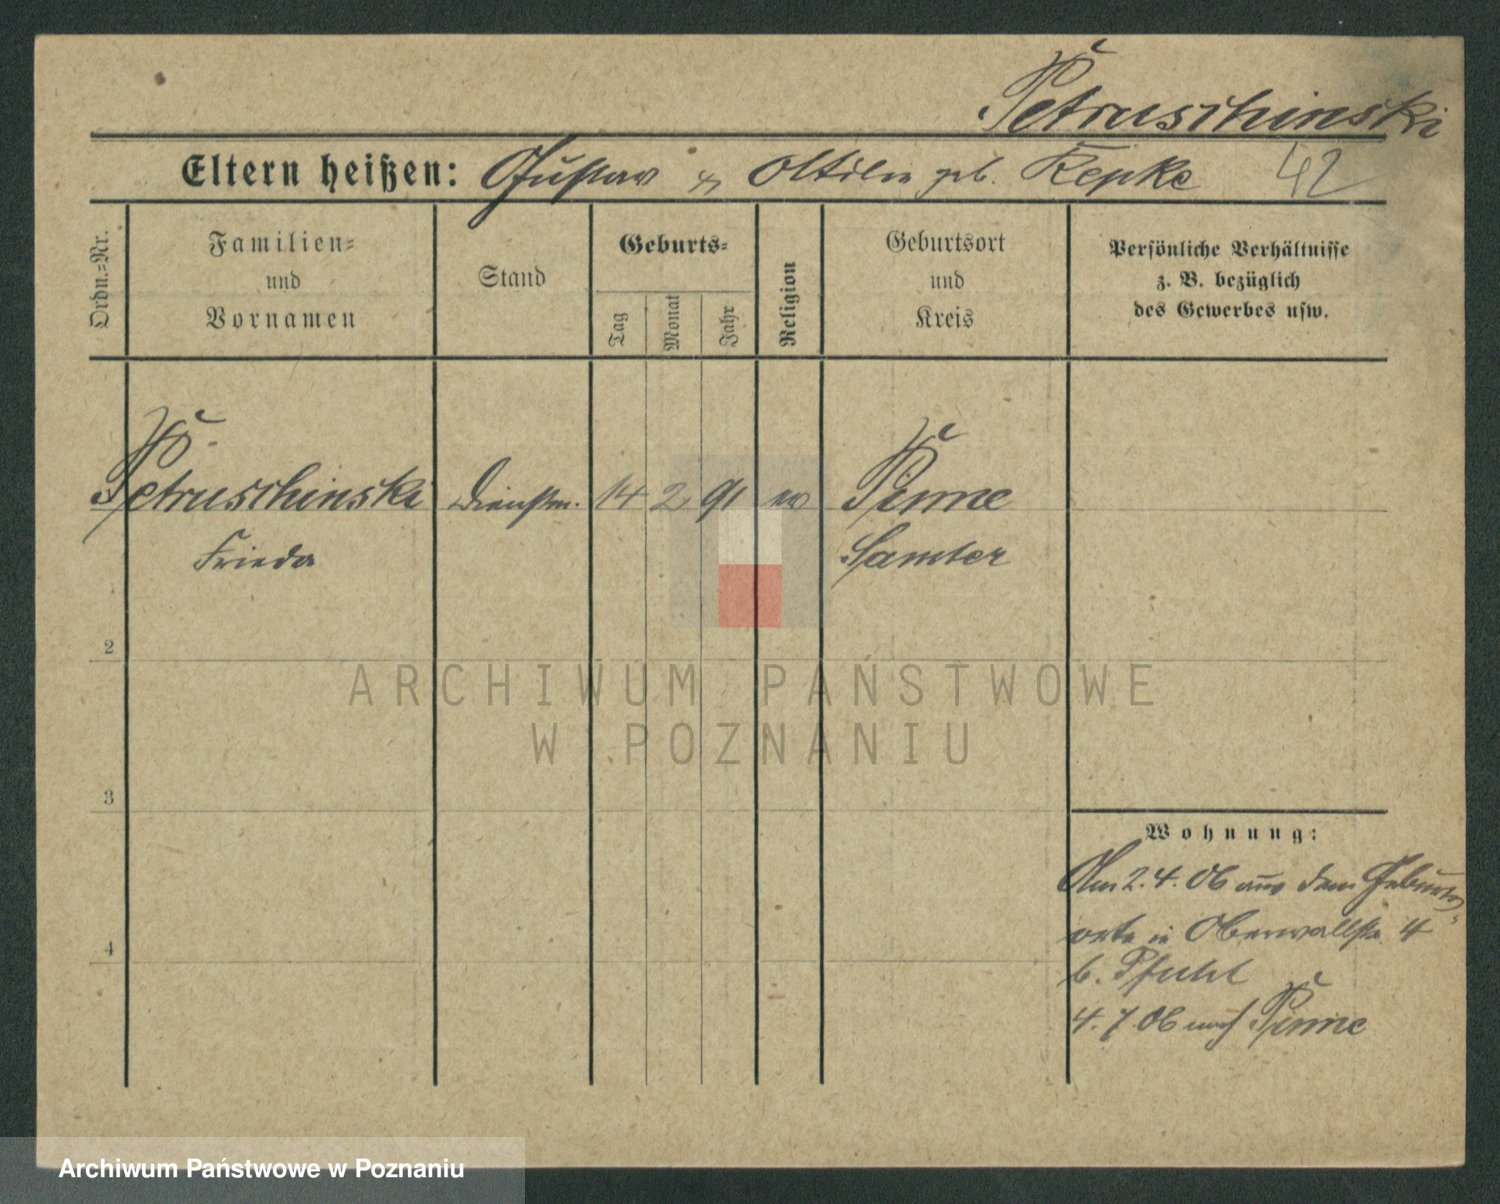 Petruschinski
Eltern heißen: Gustav & Ottilie geb. Kepke
42
Ordn.=Nr.
Familien=
und
Vornamen
Stand
Geburts=
Tag
Monat
Jahr
Religion
Geburtsort
und
Kreis
Persönliche Verhältnisse
z. B. bezüglich
des Gewerbes usw.
Petruschinski Dienstm. 14 2. 91 ev Pinne
Frieda Samter
1
2
3
4
Wohnung:
Am 2.4.06 aus dem Geburts-
orte in Oberwallstr. 4
b. Pfuhl
4.7.06 nach Pinne
ARCHIWUM PAŃSTWOWE
W POZNANIU
Archiwum Państwowe w Poznaniu